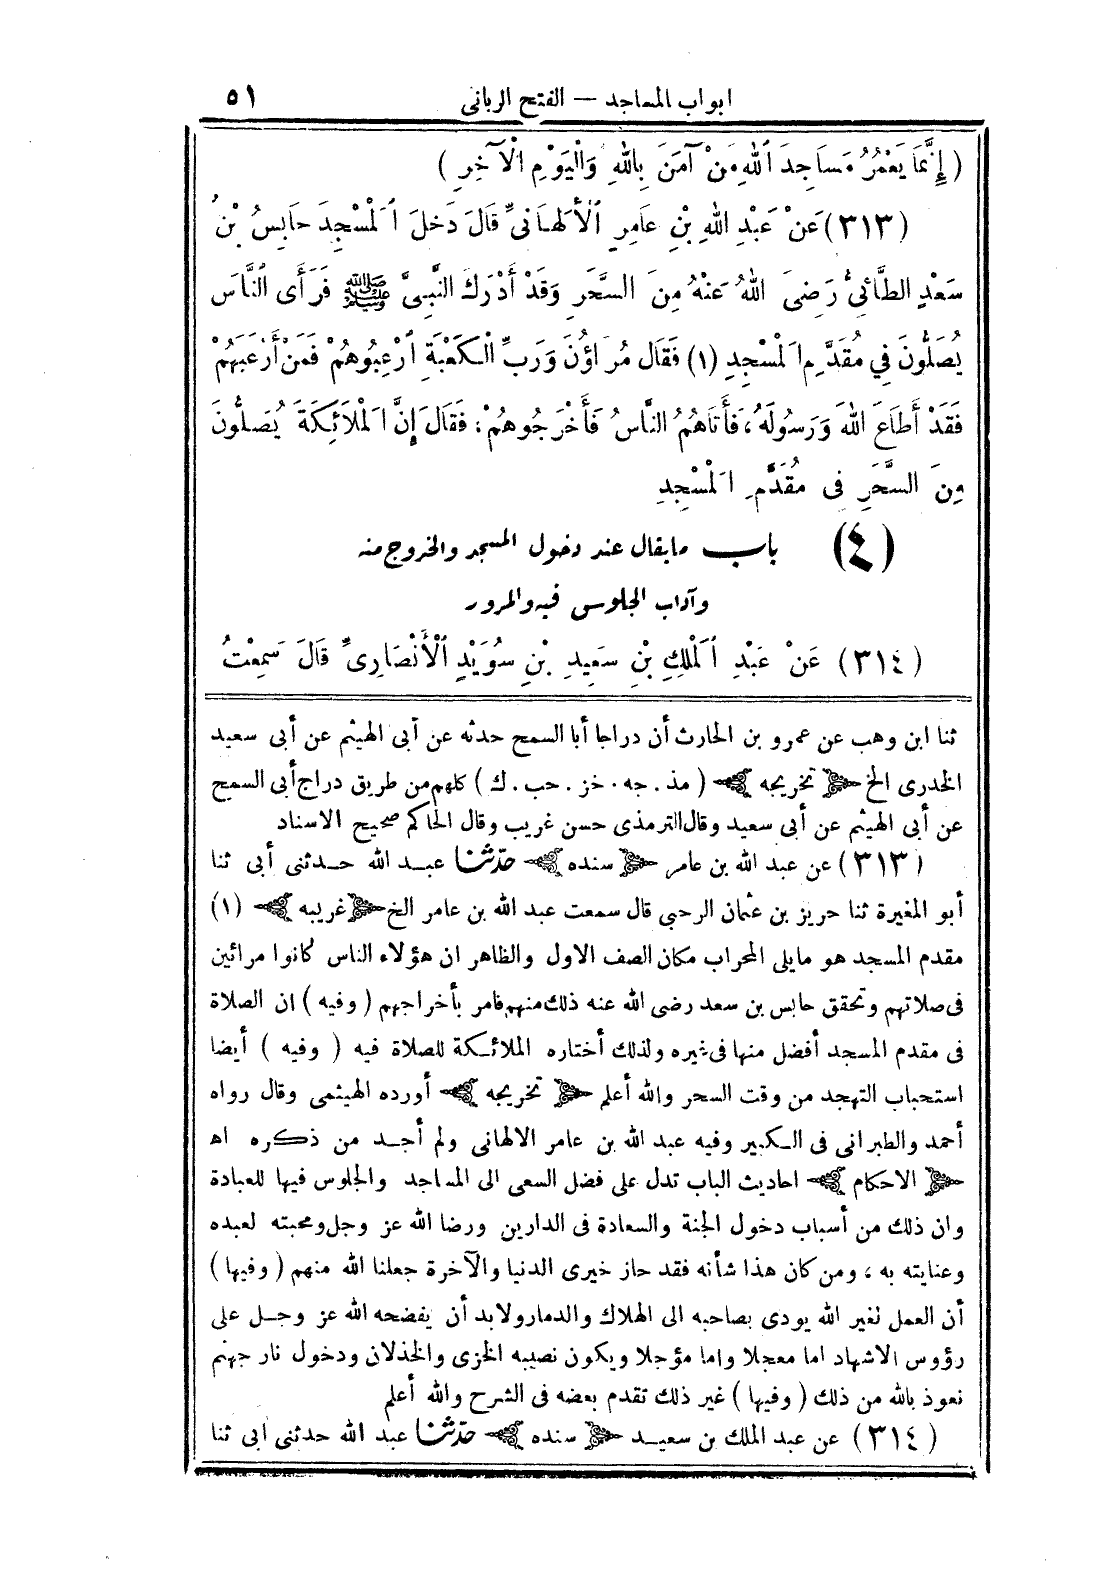 ابواب المساجد — الفتح الربانى ٥١
( إِنَّمَا يَعْمُرُ مَسَاجِدَ اللهِ مَنْ آمَنَ بِاللهِ وَالْيَوْمِ الْآخِرِ )
(٣١٣) عَنْ عَبْدِ اللهِ بْنِ عَامِرٍ الْأَلْهَانِىِّ قَالَ دَخَلَ الْمَسْجِدَ حَابِسُ بْنُ
سَعْدٍ الطَّائِىُّ رَضِىَ اللهُ عَنْهُ مِنَ السَّحَرِ وَقَدْ أَدْرَكَ النَّبِىَّ ﷺ فَرَأَى النَّاسَ
يُصَلُّونَ فِي مُقَدَّمِ الْمَسْجِدِ (١) فَقَالَ مُرَاؤُنَ وَرَبِّ الْكَعْبَةِ أَرْعِبُوهُمْ فَمَنْ أَرْعَبَهُمْ
فَقَدْ أَطَاعَ اللهَ وَرَسُولَهُ، فَأَتَاهُمُ النَّاسُ فَأَخْرَجُوهُمْ؛ فَقَالَ إِنَّ الْمَلَائِكَةَ يُصَلُّونَ
مِنَ السَّحَرِ فِى مُقَدَّمِ الْمَسْجِدِ
(٤) باب مايقال عند دخول المسجد والخروج منه
وآداب الجلوس فيه والمرور
(٣١٤) عَنْ عَبْدِ الْمَلِكِ بْنِ سَعِيدِ بْنِ سُوَيْدٍ الْأَنْصَارِىِّ قَالَ سَمِعْتُ
ثنا ابن وهب عن عمرو بن الحارث أن دراجا أبا السمح حدثه عن أبى الهيثم عن أبى سعيد
الخدرى الخ ﴿ تخريجه ﴾ ( مذ . جه . خز . حب . ك ) كلهم من طريق دراج أبى السمح
عن أبى الهيثم عن أبى سعيد وقال الترمذى حسن غريب وقال الحاكم صحيح الاسناد
(٣١٣) عن عبد الله بن عامر ﴿ سنده ﴾ حدّثنا عبد الله حدثنى أبى ثنا
أبو المغيرة ثنا حريز بن عثمان الرحبى قال سمعت عبد الله بن عامر الخ ﴿ غريبه ﴾ (١)
مقدم المسجد هو مايلى المحراب مكان الصف الاول والظاهر ان هؤلاء الناس كانوا مرائين
فى صلاتهم وتحقق حابس بن سعد رضى الله عنه ذلك منهم فامر بأخراجهم ( وفيه ) ان الصلاة
فى مقدم المسجد أفضل منها فى غيره ولذلك أختاره الملائكة للصلاة فيه ( وفيه ) أيضا
استحباب التهجد من وقت السحر والله أعلم ﴿ تخريجه ﴾ أورده الهيثمى وقال رواه
أحمد والطبرانى فى الكبير وفيه عبد الله بن عامر الالهانى ولم أجد من ذكره اه
﴿ الاحكام ﴾ احاديث الباب تدل على فضل السعى الى المساجد والجلوس فيها للعبادة
وان ذلك من أسباب دخول الجنة والسعادة فى الدارين ورضا الله عز وجل ومحبته لعبده
وعنايته به ، ومن كان هذا شأنه فقد حاز خيرى الدنيا والآخرة جعلنا الله منهم ( وفيها )
أن العمل لغير الله يودى بصاحبه الى الهلاك والدمار ولابد أن يفضحه الله عز وجل على
رؤوس الاشهاد اما معجلا واما مؤجلا ويكون نصيبه الخزى والخذلان ودخول نار جهنم
نعوذ بالله من ذلك ( وفيها ) غير ذلك تقدم بعضه فى الشرح والله أعلم
(٣١٤) عن عبد الملك بن سعيد ﴿ سنده ﴾ حدّثنا عبد الله حدثنى ابى ثنا